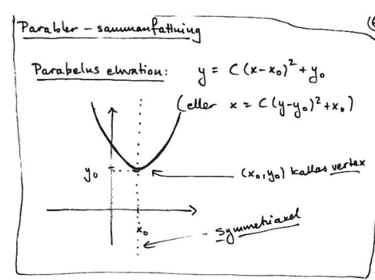 Parabler - sammanfattning
Parabelns ekvation: y = C(x-x₀)² + y₀
(eller x = C(y-y₀)² + x₀)
y₀
(x₀, y₀) kallas vertex
x₀
symmetriaxel